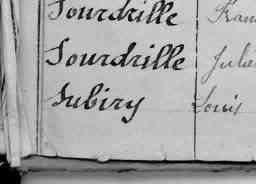 Sourdrille
Sourdrille Julie
Subiry Louis